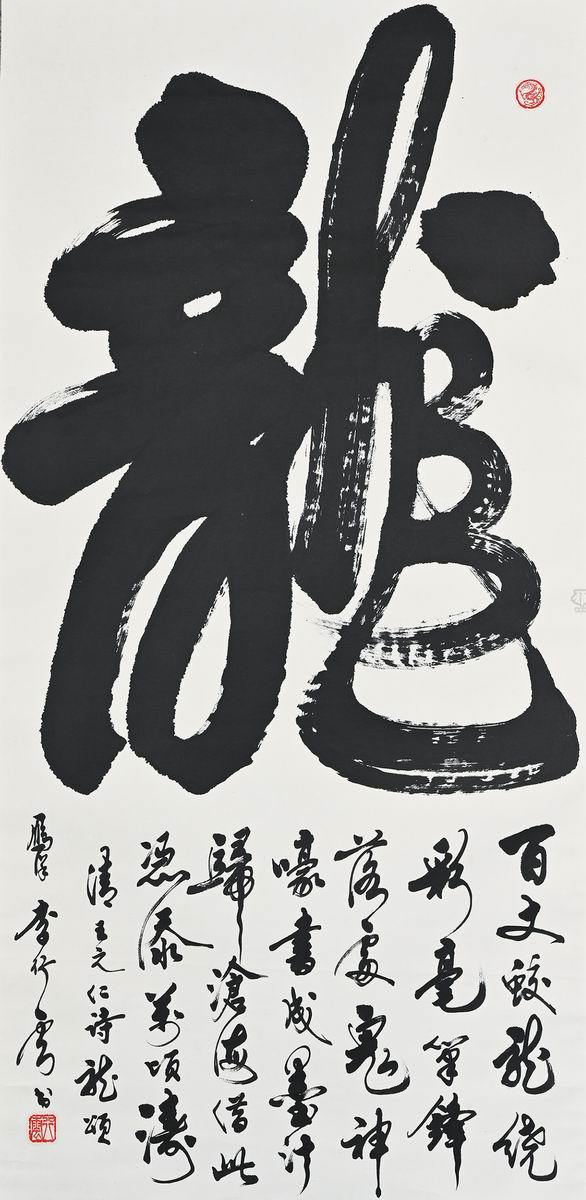 龍
百丈蛟龍繞
彩毫筆鋒
落處鬼神
嚎書成墨汁
歸滄海借此
憑添萬頃濤
清王元仁詩龍頌
李行 書